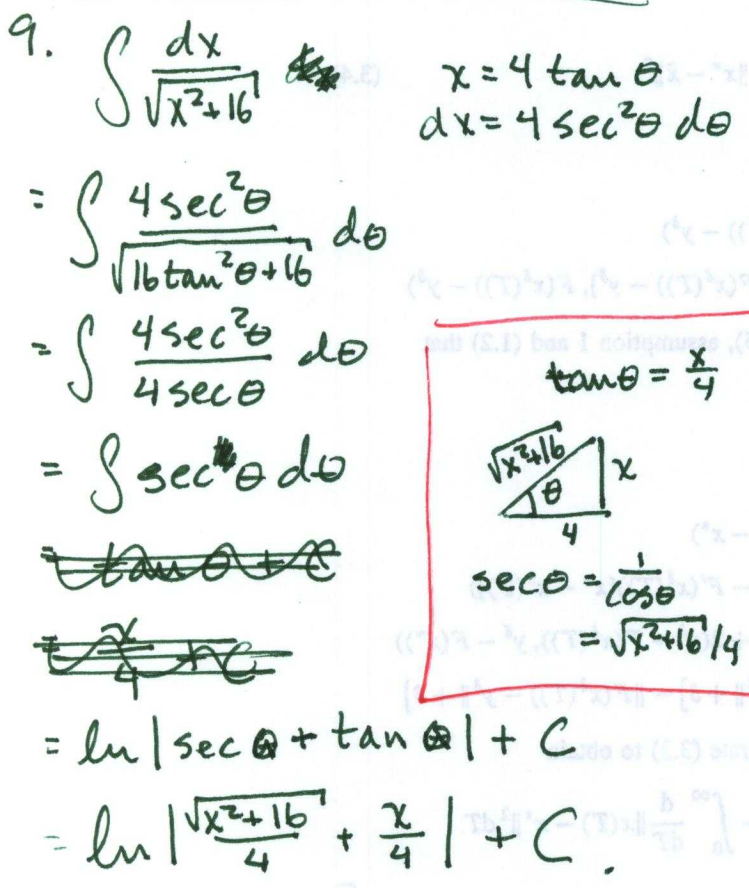 9. ∫ dx/√(x²+16)
x = 4 tan θ
dx = 4 sec²θ dθ
= ∫ 4 sec²θ/√(16 tan²θ + 16) dθ
= ∫ 4 sec²θ/4 sec θ dθ
= ∫ sec θ dθ
= tan θ + C
= x/4 + C
= ln |sec θ + tan θ| + C
= ln |√(x²+16)/4 + x/4| + C.
tan θ = x/4
√(x²+16)
x
θ
4
sec θ = 1/cos θ
= √(x²+16)/4